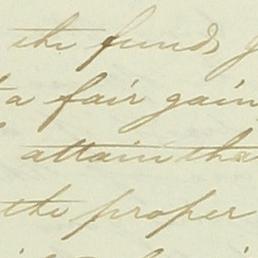 the funds
a fair gain
attain tha
the proper